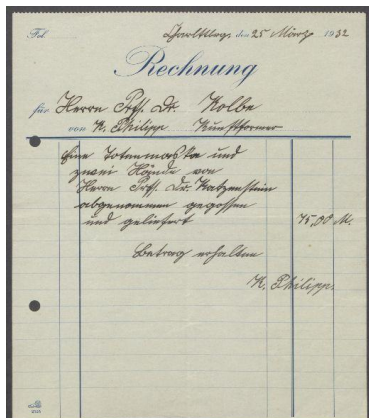 Charlttbg. den 25 März 1932
Rechnung
für Herrn Prof. Dr. Kolbe
von K. Philipp Kunstformer
Eine Totenmaske und
zwei Hände von
Herrn Prof. Dr. Katzenstein
abgenommen gegossen
und geliefert 75,00 M.
Betrag erhalten
K. Philipp.